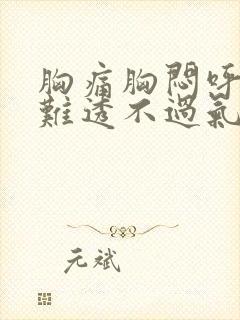 胸痛胸悶呼
難透不過氣
元斌